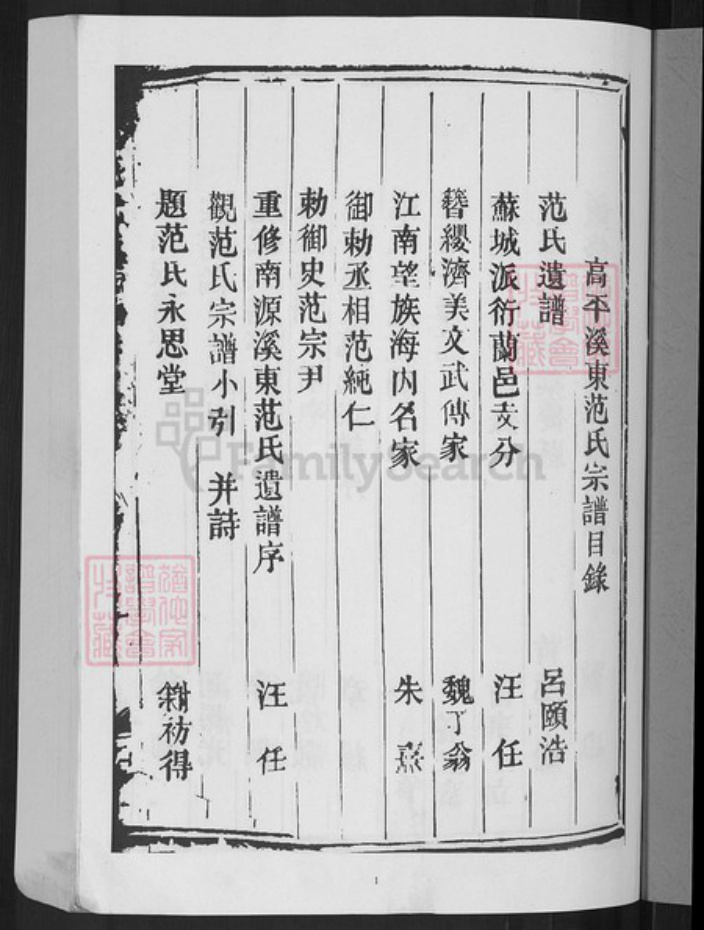 高平溪東范氏宗譜目錄
范氏遺譜 呂頤浩
蘇城派衍蘭邑支分 汪任
簪纓濟美文武傳家 魏了翁
江南望族海內名家 朱熹
御勑丞相范純仁
勅御史范宗尹
重修南源溪東范氏遺譜序 汪任
觀范氏宗譜小引 并詩
題范氏永思堂 謝枋得
FamilySearch
猶他家譜學會收藏
猶他家譜學會收藏
1